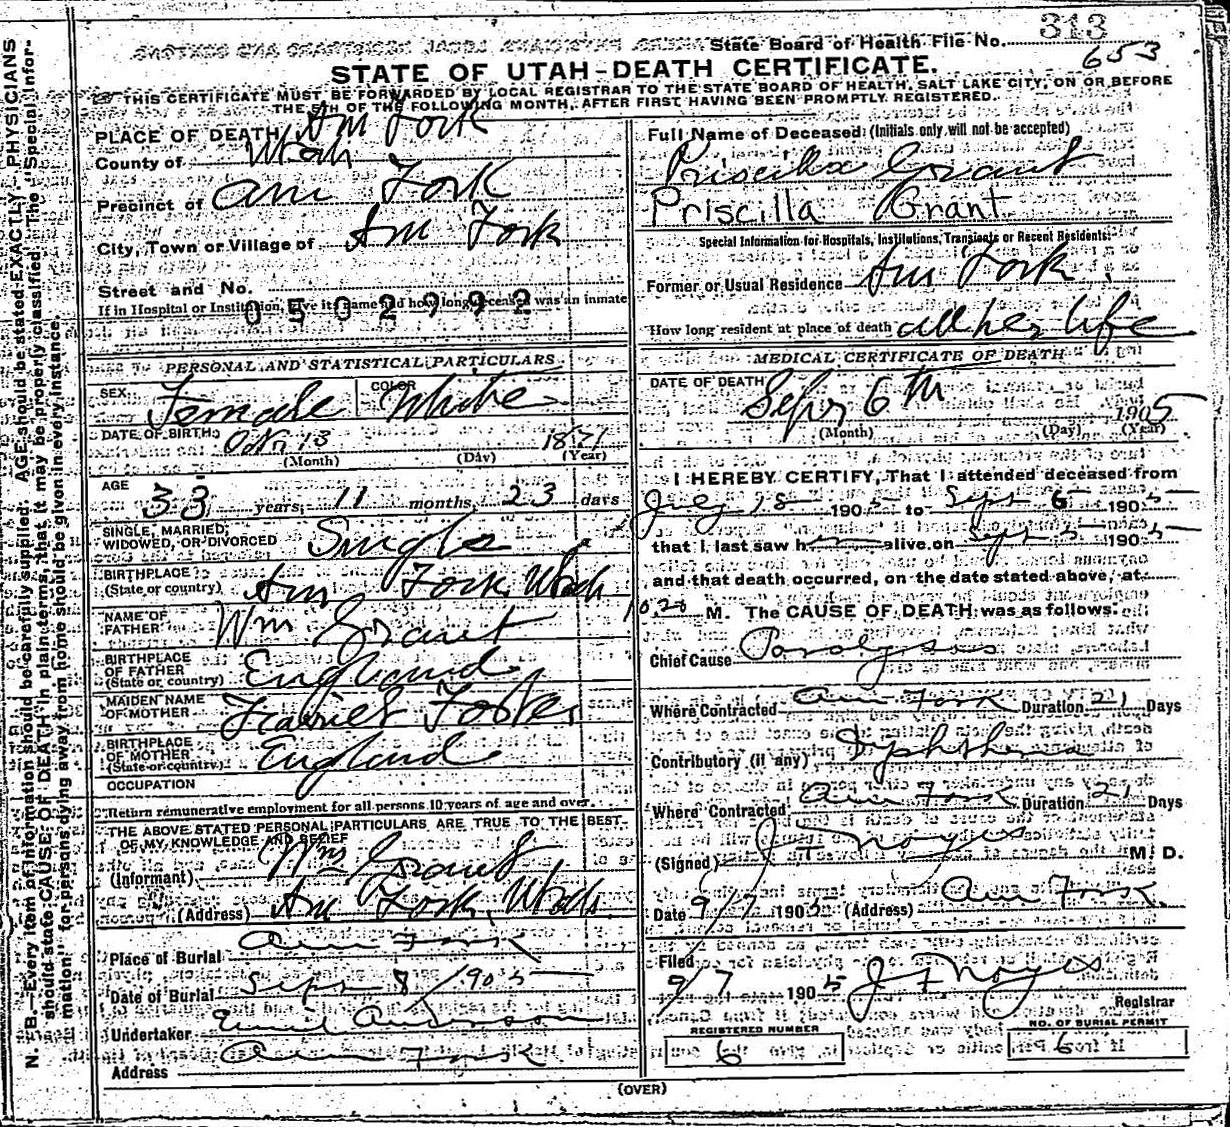 State Board of Health File No. 313
653
STATE OF UTAH-DEATH CERTIFICATE.
THIS CERTIFICATE MUST BE FORWARDED BY LOCAL REGISTRAR TO THE STATE BOARD OF HEALTH, SALT LAKE CITY, ON OR BEFORE
THE 5TH OF THE FOLLOWING MONTH, AFTER FIRST HAVING BEEN PROMPTLY REGISTERED.
PLACE OF DEATH Am Fork
County of Utah
Precinct of Am Fork
City, Town or Village of Am Fork
Street and No.
If in Hospital or Institution, give its name and how long deceased was an inmate
0502992
PERSONAL AND STATISTICAL PARTICULARS
SEX Female COLOR White
DATE OF BIRTH: Oct 13 1871
(Month) (Day) (Year)
AGE 33 years, 11 months, 23 days
SINGLE, MARRIED,
WIDOWED, OR DIVORCED Single
BIRTHPLACE
(State or country) Am Fork, Utah
NAME OF
FATHER Wm Grant
BIRTHPLACE
OF FATHER
(State or country) England
MAIDEN NAME
OF MOTHER Harriet Foster
BIRTHPLACE
OF MOTHER
(State or country) England
OCCUPATION
Return remunerative employment for all persons 10 years of age and over.
THE ABOVE STATED PERSONAL PARTICULARS ARE TRUE TO THE BEST
OF MY KNOWLEDGE AND BELIEF
(Informant) Wm Grant
(Address) Am Fork, Utah.
Place of Burial Am Fork
Date of Burial Sept 8 / 1905
Undertaker Emil Anderson
Address Am Fork
Full Name of Deceased (Initials only will not be accepted)
Priscilla Grant
Priscilla Grant
Special Information for Hospitals, Institutions, Transients or Recent Residents.
Former or Usual Residence Am Fork.
How long resident at place of death all her life
MEDICAL CERTIFICATE OF DEATH
DATE OF DEATH Sept 6th 1905
(Month) (Day) (Year)
I HEREBY CERTIFY, That I attended deceased from
July 18 1905 to Sept 6 1905
that I last saw her alive on Sept 5 1905
and that death occurred, on the date stated above, at
10.20 M. The CAUSE OF DEATH was as follows.
Chief Cause Paralysis
Where Contracted Am Fork Duration 21 Days
Contributory (if any) Diphtheria
Where Contracted Am Fork Duration 21 Days
(Signed) J F Noyes M. D.
Date 9/7 1905 (Address) Am Fork.
Filed
9/7 1905 J F Noyes
Registrar
REGISTERED NUMBER
6
NO. OF BURIAL PERMIT
6
(OVER)
N. B.—Every item of information should be carefully supplied. AGE should be stated EXACTLY. PHYSICIANS
should state CAUSE OF DEATH in plain terms, that it may be properly classified. The "Special Infor-
mation" for persons dying away from home should be given in every instance.